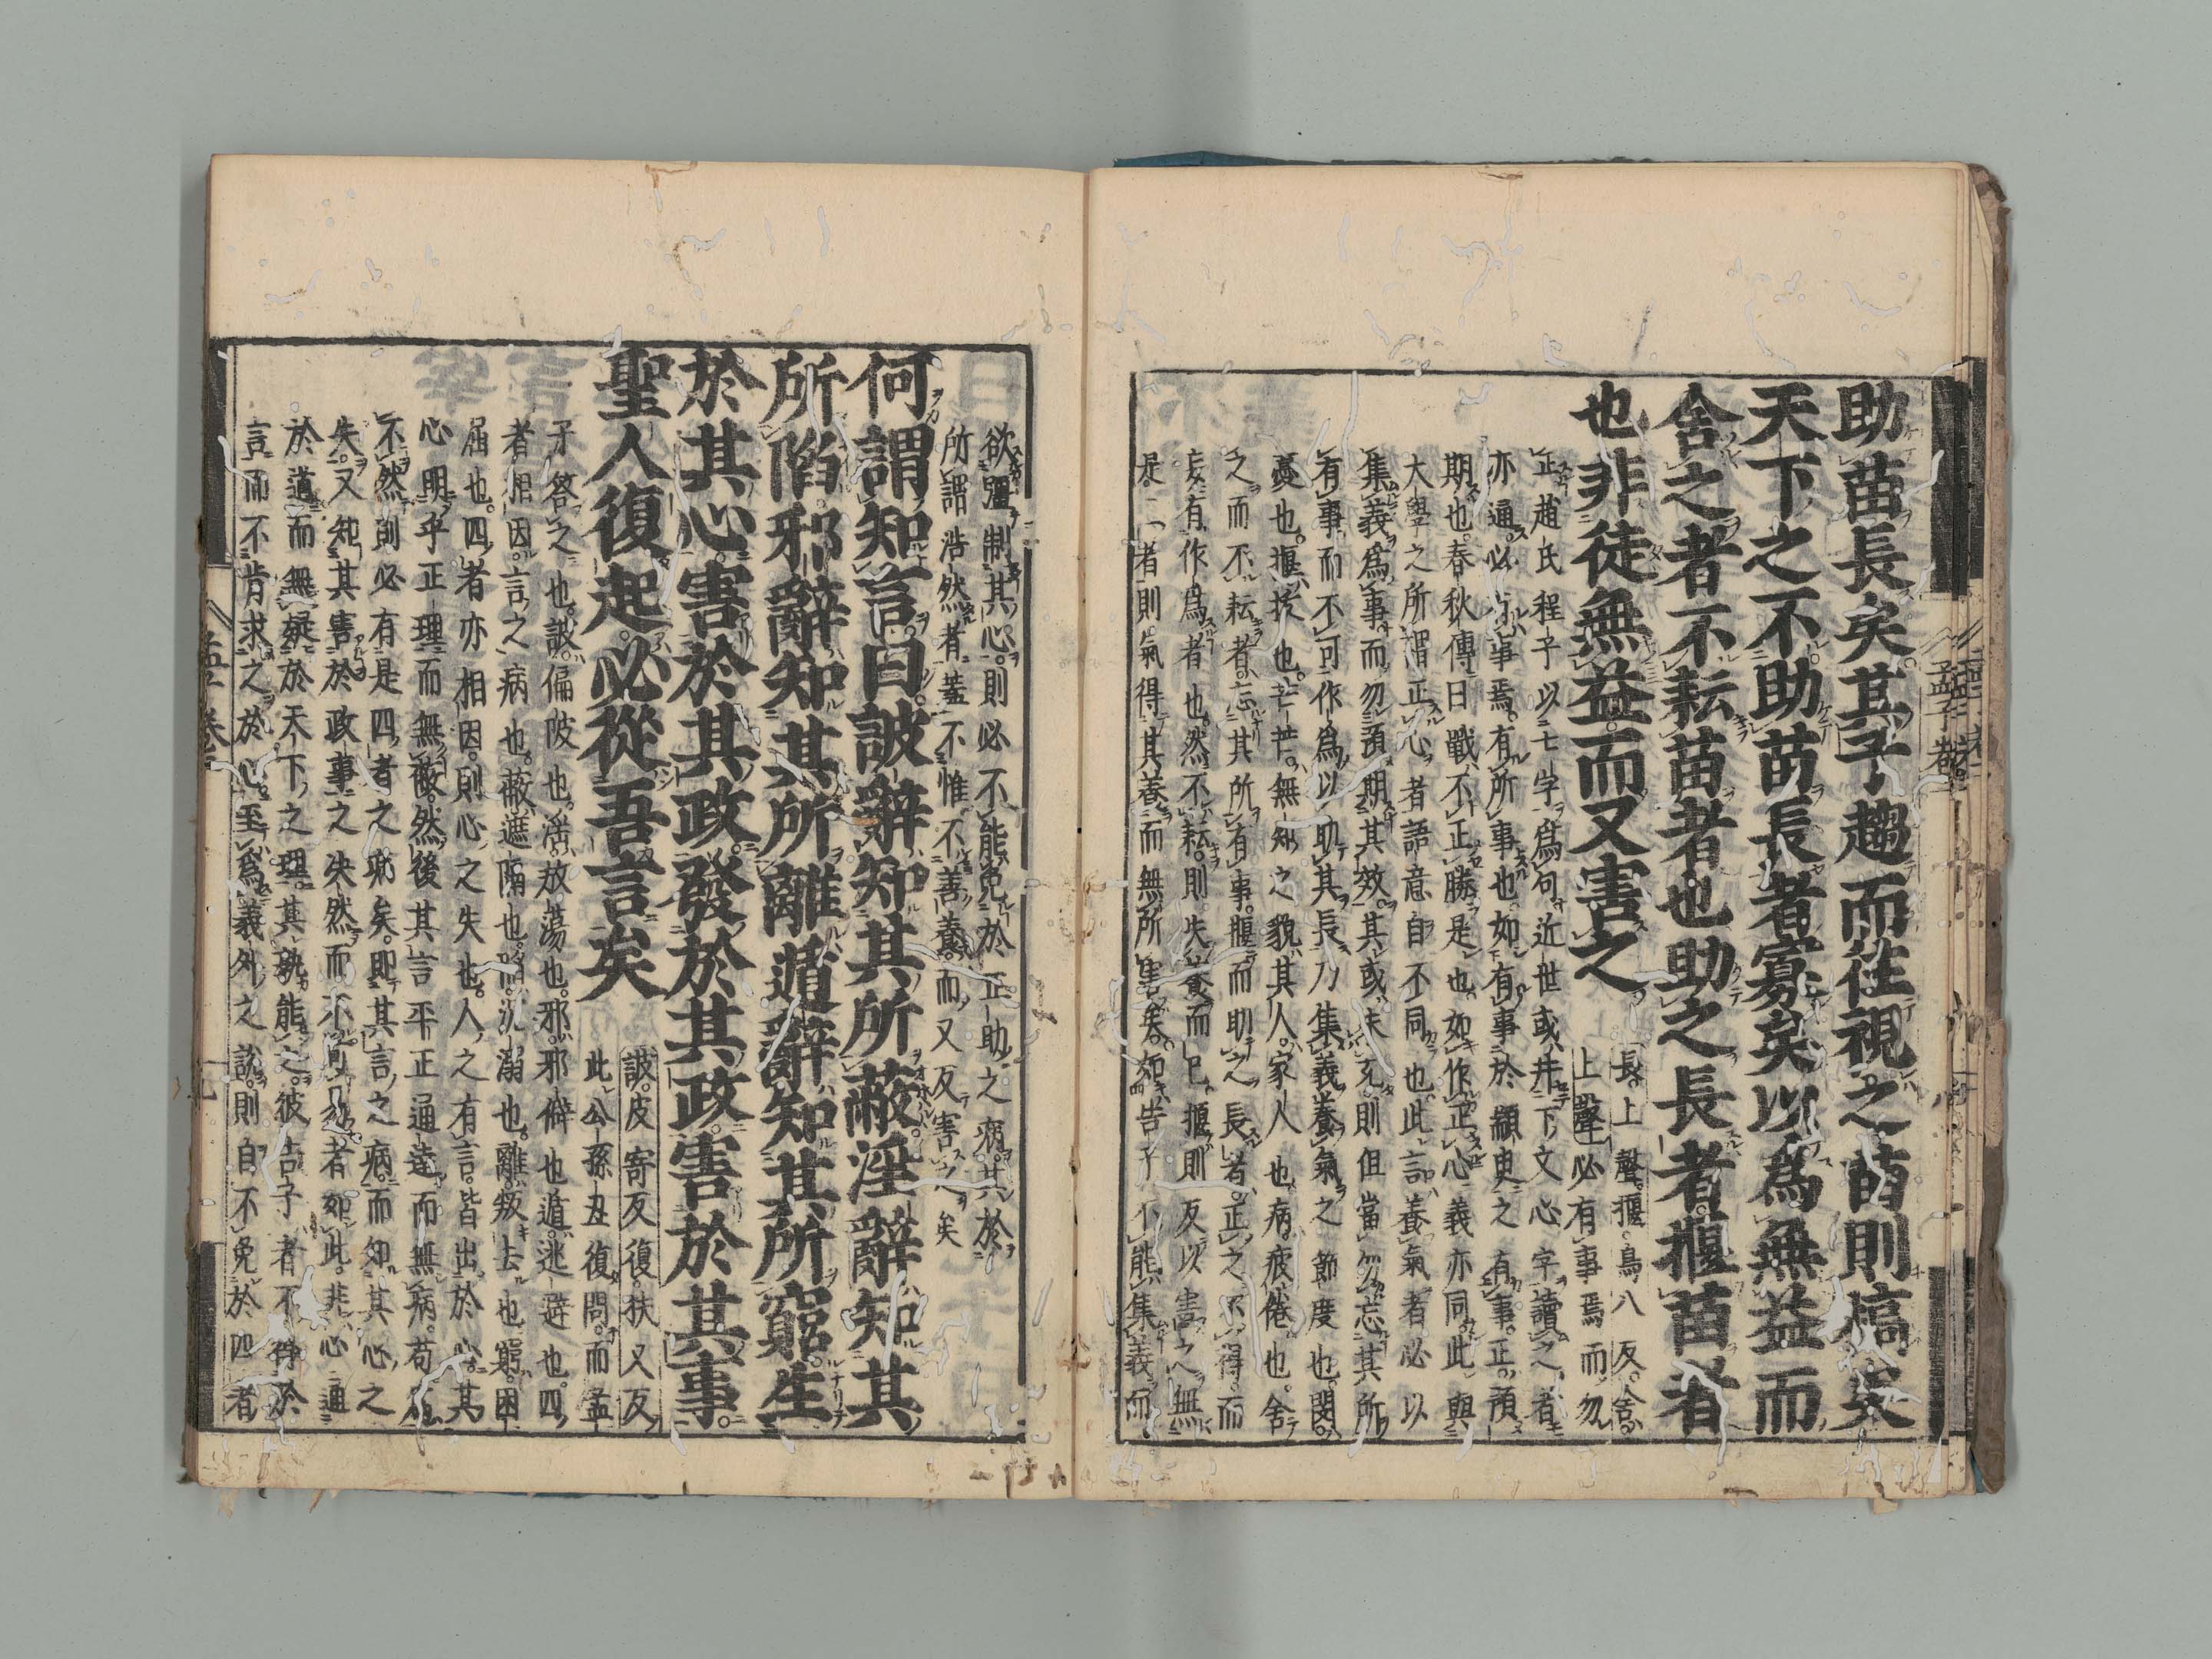 助苗長矣其子趨而往視之苗則槁矣
天下之不助苗長者寡矣以爲無益而
舍之者不耘苗者也助之長者揠苗者
也非徒無益而又害之
長上聲揠烏八反舍
上聲必有事焉而勿
正趙氏程子以七字爲句近世或幷下文心字讀之者
亦通必有事焉有所事也如有事於顓臾之有事正預
期也春秋傳曰戰不正勝是也如作正心義亦同此與
大學之所謂正心者語意自不同也此言養氣者必以
集義爲事而勿預期其效其或未充則但當勿忘其所
有事而不可作爲以助其長乃集義養氣之節度也閔
憂也揠拔也芒芒無知之貌其人家人也病疲倦也舍
之而不耘者忘其所有事揠而助之長者正之不得而
妄有作爲者也然不耘則失養而已揠則反以害之無
是二者則氣得其養而無所害矣如告子不能集義而
欲彊制其心則必不能免於正助之病其於
所謂浩然者蓋不惟不善養而又反害之矣
何謂知言曰詖辭知其所蔽淫辭知其
所陷邪辭知其所離遁辭知其所窮生
於其心害於其政發於其政害於其事
聖人復起必從吾言矣
詖皮寄反復扶又反
此公孫丑復問而孟
子答之也詖偏陂也淫放蕩也邪邪僻也遁逃避也四
者相因言之病也蔽遮隔也陷沉溺也離叛去也窮困
屈也四者亦相因則心之失也人之有言皆出於心其
心明乎正理而無蔽然後其言平正通達而無病苟爲
不然則必有是四者之病矣即其言之病而知其心之
失又知其害於政事之決然而不可易者如此非心通
於道而無疑於天下之理其孰能之彼告子者不得於
言而不肯求之於心至爲義外之說則自不免於四者
孟子 卷三